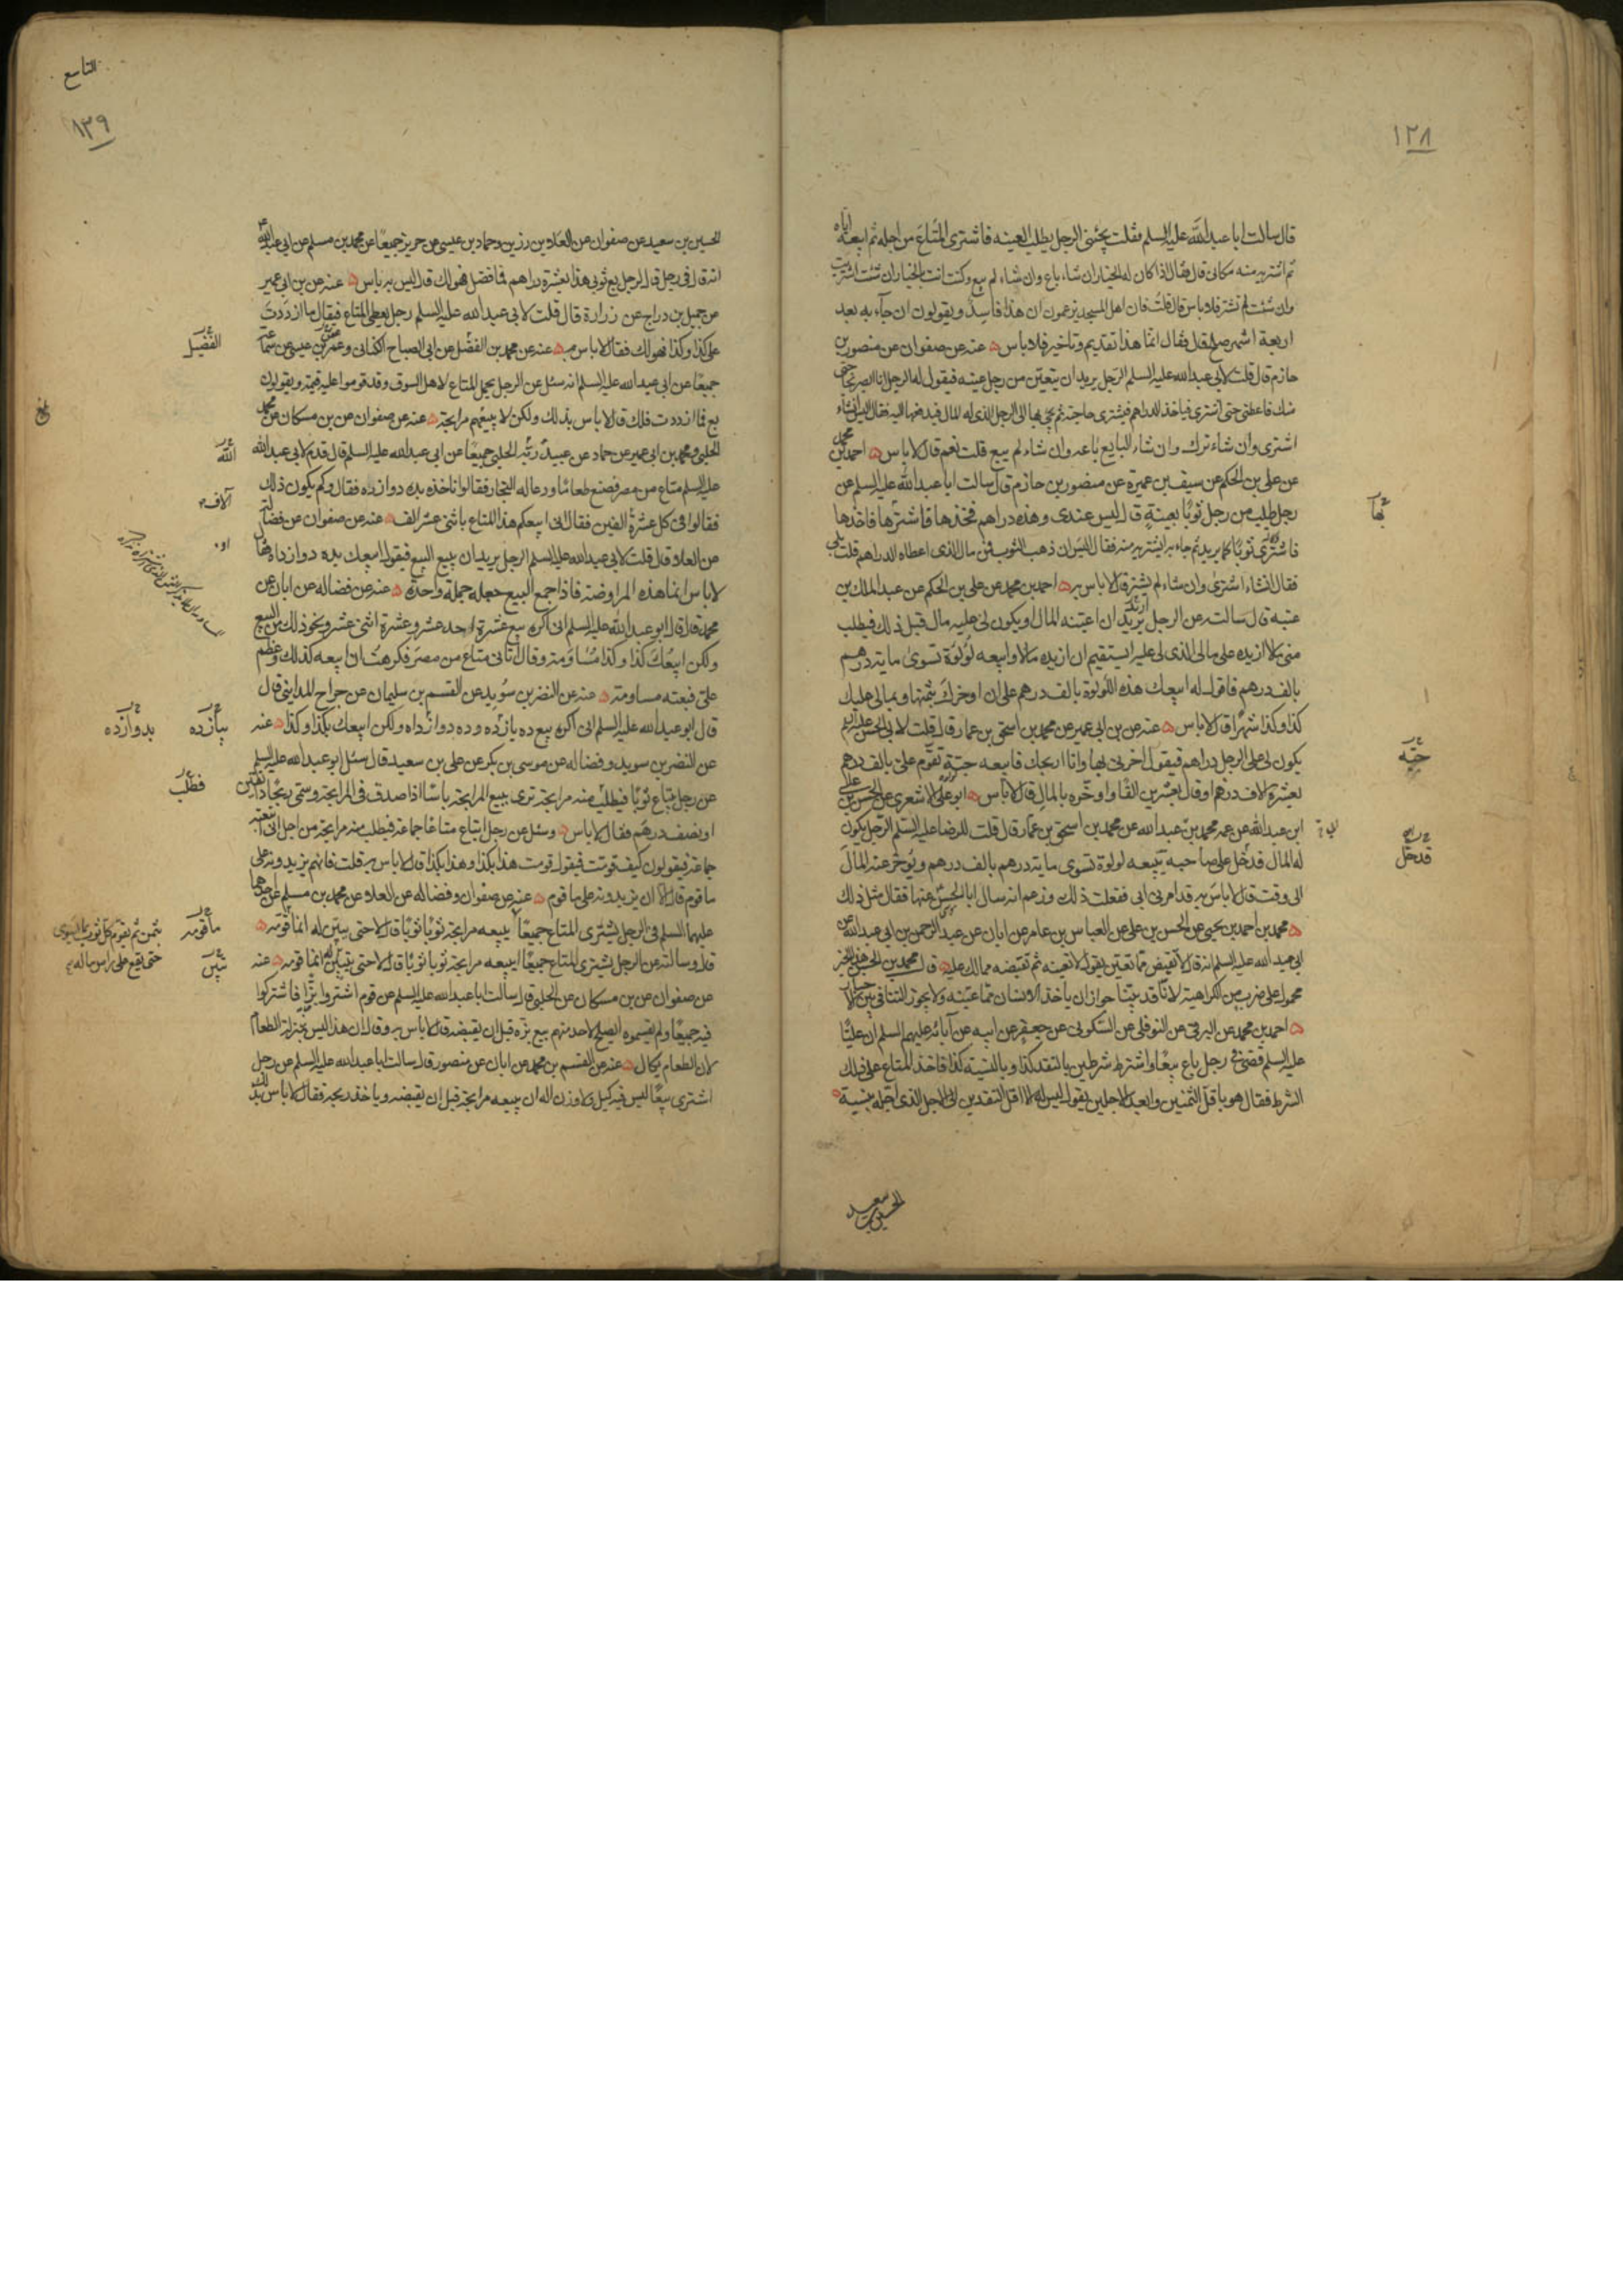 ١٢٨
قال سالت ابا عبد الله عليه السلم فقلت يجئني الرجل يطلب العينه فاشترى المتاع من اجله ثم ابيعه اياه
ثم اشتريه منه مكاني قال فقال اذا كان له الخيار ان شاء باع وان شاء لم يبع وكنت انت بالخيار ان شئت اشتريت
وان شئت لم تشتر فلا باس قال قلت فان اهل المسجد يزعمون ان هذا فاسد ويقولون ان جاء به بعد
اربعة اشهر صلح قال فقال انما هذا تقديم وتاخير فلا باس عنه عن صفوان عن منصور بن
حازم قال قلت لابي عبد الله عليه السلم الرجل يريد ان يتعين من رجل عينه فيقول له الرجل انا ابصر بحاجتى
منك فاعطنى حتى اشترى فياخذ الدراهم فيشترى حاجته ثم يجئ بها الى الرجل الذى له المال فيدفعها اليه فقال اليس ان شاء
اشترى وان شاء ترك وان شاء البايع باعه وان شاء لم يبع قلت نعم قال لا باس احمد بن محمد
عن على بن الحكم عن سيف بن عميرة عن منصور بن حازم قال سالت ابا عبد الله عليه السلم عن
رجل طلب من رجل ثوبا بعينة قال ليس عندى وهذه دراهم فخذها فاشتر بها فاخذها
فاشترى ثوبا كما يريد ثم جاء به ايشتريه منه فقال اليس ان ذهب الثوب فمن مال الذى اعطاه الدراهم قلت بلى
فقال ان شاء اشترى وان شاء لم يشتر قال لا باس به احمد بن محمد عن على بن الحكم عن عبد الملك بن
عتبه قال سالته عن الرجل يريد ان اعينه المال او يكون لى عليه مال قبل ذلك فيطلب
منى مالا ازيده على مالى الذى لى عليه ايستقيم ان ازيده مالا وابيعه لؤلؤة تسوى ماية درهم
بالف درهم فاقول له ابيعك هذه اللؤلؤة بالف درهم على ان اوخرك بثمنها وبمالى عليك
كذا وكذا شهرا قال لا باس عنه عن بن ابى عمير عن محمد بن اسحق بن عمار قال قلت لابى الحسن عليه السلم
يكون لى على الرجل دراهم فيقول اخرنى بها وانا اربحك فابيعه جبة تقوم على بالف درهم
بعشرة الاف درهم او قال بعشرين الفا واوخره بالمال قال لا باس ابو على الاشعرى عن الحسن بن على
ابن عبد الله عن عمه محمد بن عبد الله عن محمد بن اسحق بن عمار قال قلت للرضا عليه السلم الرجل يكون
له المال قد حل على صاحبه يبيعه لولوة تسوى ماية درهم بالف درهم ويؤخر عنه المال
الى وقت قال لا باس به قد امرنى ابى ففعلت ذلك وزعم انه سال ابا الحسن عنها فقال مثل ذلك
محمد بن احمد بن يحيى عن الحسن بن على عن العباس بن عامر عن ابان عن عبد الرحمن بن ابى عبد الله عن
ابى عبد الله عليه السلم انه قال لا تقبض مما تعين يقول لا تعينه ثم تقبضه مما لك عليه قال محمد بن الحسن هذا الخبر
محمول على ضرب من الكراهية لانا قد بينا جواز ان ياخذ الانسان مما عينه ولا يجوز التنافى بين
احمد بن محمد عن البرقى عن النوفلى عن السكونى عن جعفر عن ابيه عن آبائه عليهم السلم ان عليا
عليه السلم قضى فى رجل باع بيعا واشترط شرطين بالنقد كذا وبالنسيئة كذا فاخذ المتاع على ذلك
الشرط فقال هو باقل الثمنين وابعد الاجلين يقول ليس له الا اقل النقدين الى الاجل الذى اجله بنسية
بها
جبه
قد حل
الحسين بن سعيد
التاسع
١٣٩
الحسين بن سعيد عن صفوان عن العلاء بن رزين وحماد بن عيسى عن حريز جميعا عن محمد بن مسلم عن ابى عبد الله
انه قال فى رجل قال لرجل بع ثوبى هذا بعشرة دراهم فما فضل فهو لك قال ليس به باس عنه عن بن ابى عمير
عن جميل بن دراج عن زرارة قال قلت لابى عبد الله عليه السلم رجل يعطى المتاع فيقال ما ازددت
على كذا وكذا فهو لك فقال لا باس به عنه عن محمد بن الفضل عن ابى الصباح الكنانى وعثمن بن عيسى عن سماعة
جميعا عن ابى عبد الله عليه السلم انه سئل عن الرجل يحمل المتاع لاهل السوق وقد قوموا عليه قيمة ويقولون
بع فما ازددت فلك قال لا باس بذلك ولكن لا يبيعهم مرابحة عنه عن صفوان عن بن مسكان عن محمد
الحلبى ومحمد بن ابى عمير عن حماد عن عبيد الحلبى جميعا عن ابى عبد الله عليه السلم قال قدم لابى عبد الله
عليه السلم متاع من مصر فصنع طعاما ودعا له التجار فقالوا ناخذه بده دوازده فقال وكم يكون ذلك
فقالوا فى كل عشرة الفين فقال انى ابيعكم هذا المتاع باثنى عشر الف عنه عن صفوان عن فضالة
عن العلاء قال قلت لابى عبد الله عليه السلم الرجل يريد ان يبيع البيع فيقول ابيعك بده دوازداه فقال
لا باس انما هذه المراوضة فاذا جمع البيع جعله جملة واحدة عنه عن فضاله عن ابان عن
محمد قال قال ابو عبد الله عليه السلم انى اكره بيع عشرة احد عشر وعشرة اثنى عشر ونحو ذلك من البيع
ولكن ابيعك كذا وكذا مساومة وقال اتانى متاع من مصر فكرهت ان ابيعه كذلك وعظم
على فبعته مساومة عنه عن النضر بن سويد عن القسم بن سليمان عن جراح المداينى قال
قال ابو عبد الله عليه السلم انى اكره بيع ده يازده وده دوازداه ولكن ابيعك بكذا وكذا عنه
عن النضر بن سويد وفضاله عن موسى بن بكر عن على بن سعيد قال سئل ابو عبد الله عليه السلم
عن رجل يبتاع ثوبا فيطلب منه مرابحة ترى ببيع المرابحة باسا اذا صدق فى المرابحة وسمى ربحا دانقين
او نصف درهم فقال لا باس وسئل عن رجل ابتاع متاعا جماعة فيطلب منه مرابحة من اجل انى ابتعته
جماعة فيقولون كيف قومت فيقول قومت هذا بكذا وهذا بكذا قال لا باس به قلت فانهم يزيدونه على
ما قوم قال لا الا ان يزيدونه على ما قوم عنه عن صفوان وفضاله عن العلا عن محمد بن مسلم عن احدهما
عليهما السلم فى الرجل يشترى المتاع جميعا ايبيعه مرابحة ثوبا ثوبا قال لا حتى يبين له انما قومه
قال وسالته عن الرجل يشترى المتاع جميعا ايبيعه مرابحة ثوبا ثوبا قال لا حتى يبين له انما قومه عنه
عن صفوان عن بن مسكان عن الحلبى قال سالت ابا عبد الله عليه السلم عن قوم اشتروا بزا فاشتركوا
فيه جميعا ولم يقسموه ايصلح لاحد منهم بيع بزه قبل ان يقبضه قال لا باس به وقال ان هذا ليس بمنزلة الطعام
لان الطعام يكال عنه عن القسم بن محمد عن ابان عن منصور قال سالت ابا عبد الله عليه السلم عن رجل
اشترى بيعا ليس فيه كيل ولا وزن اله ان يبيعه مرابحة قبل ان يقبضه وياخذ ربحه فقال لا باس بذلك
الفضيل
بلغ
الله
آلاف
بيازده
بدوازده
فطلب
ما قومه